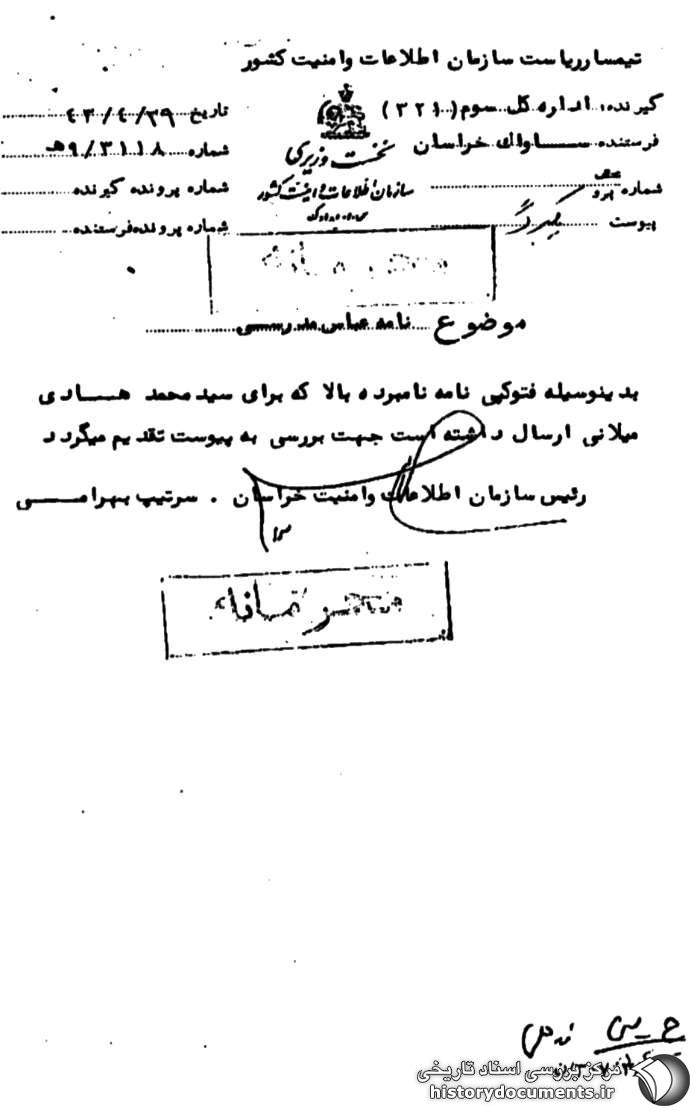 تیمسار ریاست سازمان اطلاعات وامنیت کشور
گیرنده: اداره کل سوم (۳۲۱)
تاریخ ۴۳/۴/۲۹
فرستنده ساواک خراسان
شماره ۹/۳۱۱۸ هـ
نخست وزیری
سازمان اطلاعات و امنیت کشور
س.ا.و.ا.ک
شماره پیرو
شماره پرونده گیرنده
پیوست یکبرگ
شماره پرونده فرستنده
محرمانه
موضوع نامه عباس
بدینوسیله فتوکپی نامه نامبرده بالا که برای سیدمحمد هادی
میلانی ارسال داشته است جهت بررسی به پیوست تقدیم میگردد
رئیس سازمان اطلاعات وامنیت خراسان . سرتیپ بهرامی
محرمانه
مرکز بررسی اسناد تاریخی
historydocuments.ir